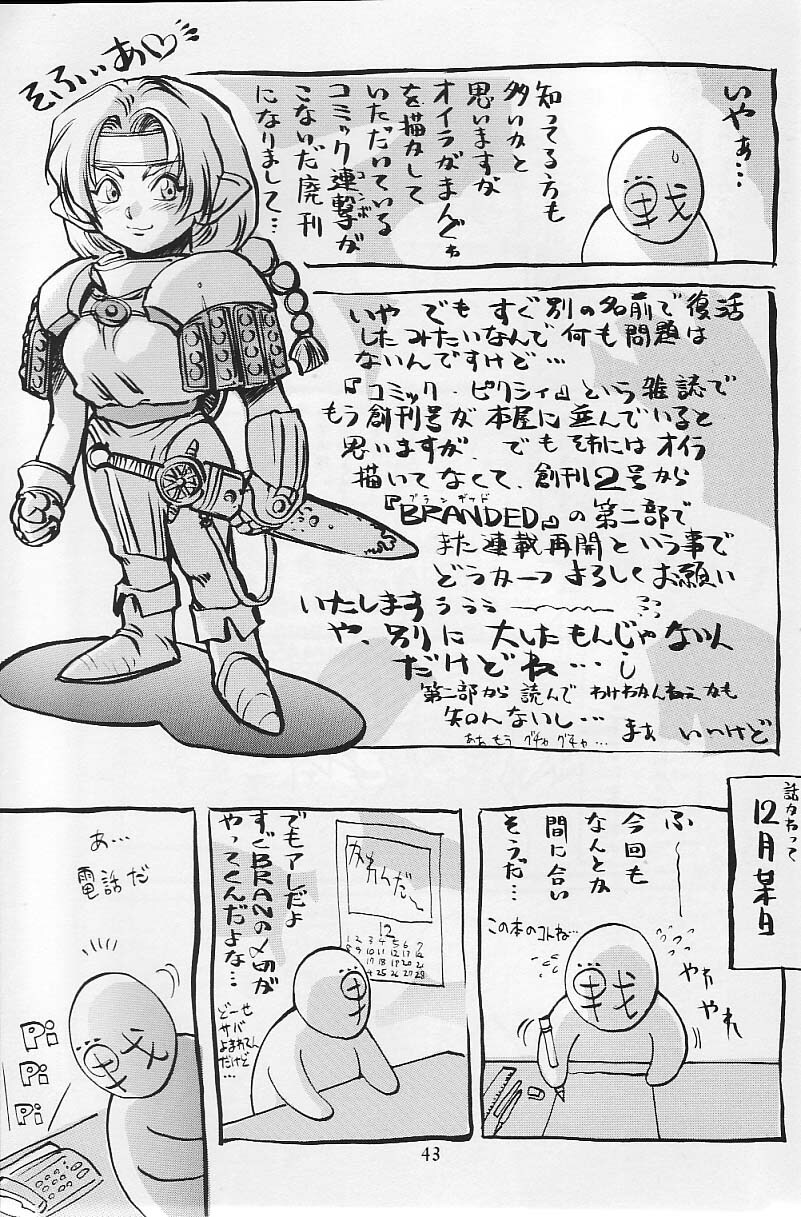 そふぃあ♡
いやぁ…
戦
知ってる方も
多いかと
思いますが
オイラがまんぐゎ
を描かして
いただいている
コミック連撃が
コンボ
こないだ廃刊
になりまして…
いや でも すぐ別の名前で復活
したみたいなんで何も問題は
ないんですけど…
『コミック・ピクシィ』という雑誌で
もう創刊号が本屋に並んでいると
思いますが、でもそれにはオイラ
描いてなくて、創刊2号から
ブランデッド
『BRANDED』の第二部で
また連載再開という事で
どうか一つよろしくお願い
いたしますぅぅぅ
や、別に大したもんじゃないん
だけどね…
第二部から読んでわけわかんねえかも
知んないし…
まぁ いいけど
ああもう グチャグチャ…
話かわって
12月某日
ふ〜
今回も
なんとか
間に合い
そうだ…
この本のコトね…
やれ
やれ
戦
12
でもアレだよ
すぐBRANの〆切が
やってくんだよな…
どーせ
サバ
よまれてん
だけど
…
戦
あ…
電話だ
戦
Pi
Pi
Pi
43